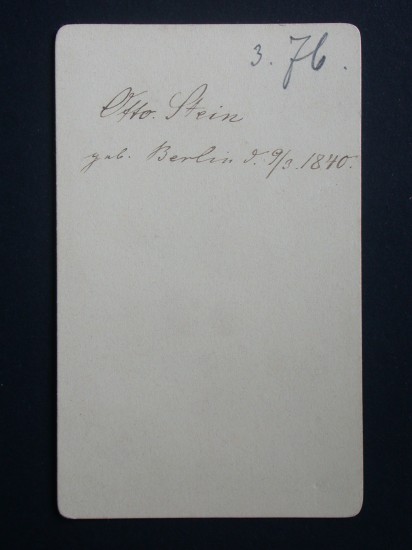 3. 76.
Otto Stein
geb. Berlin d. 9/3. 1840.